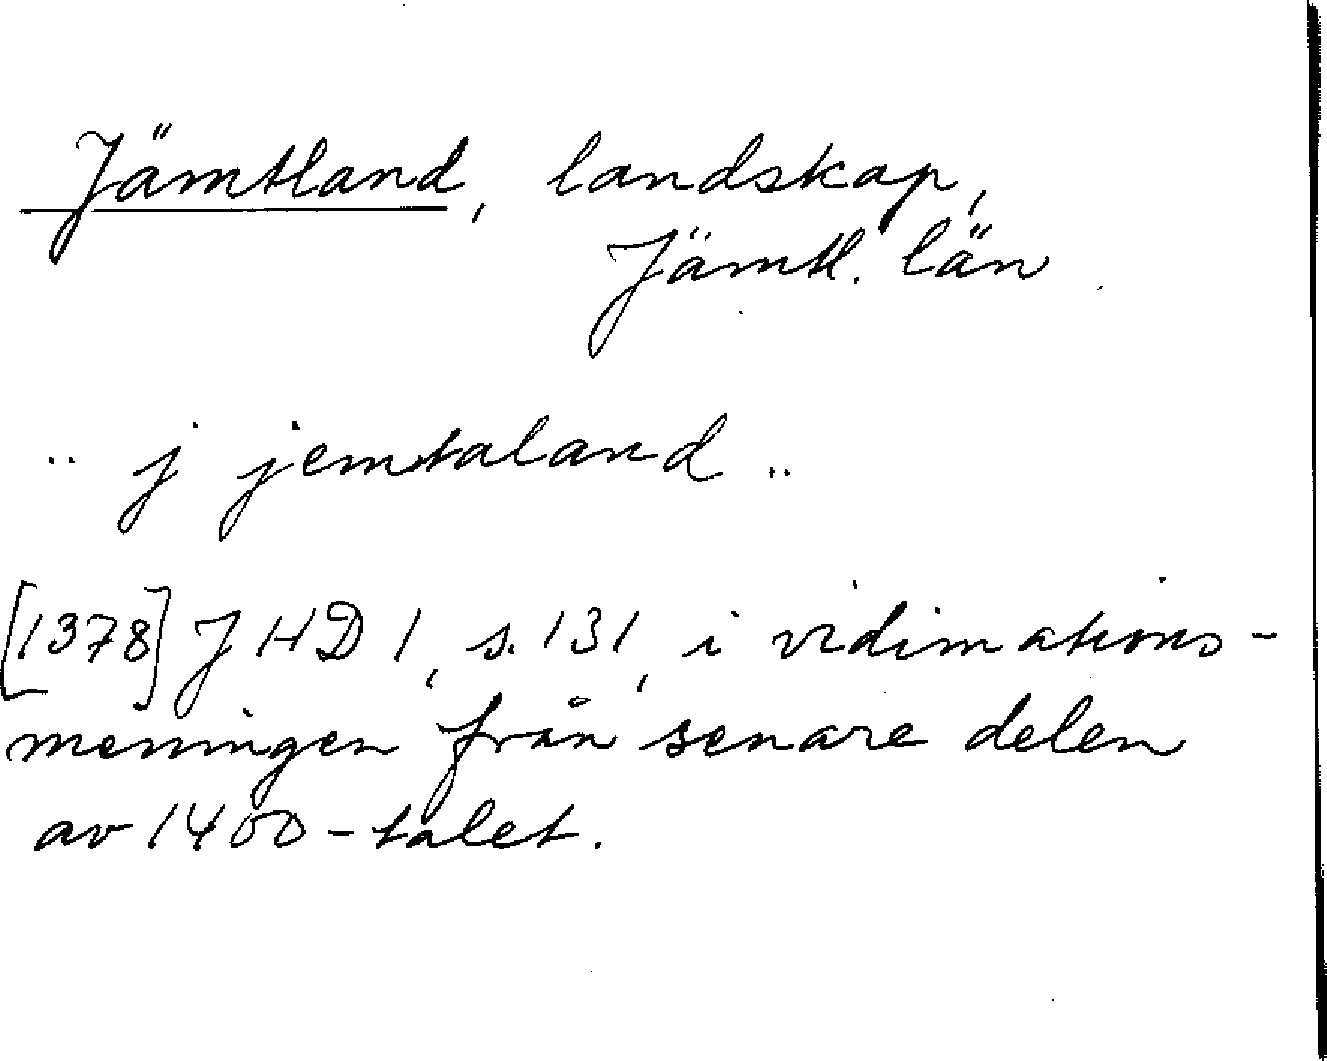 Jämtland, landskap,
Jämtl. län
.. j jemtaland ..
[1378] JHD 1, s. 131, i vidimations-
meningen från senare delen
av 1400-talet.